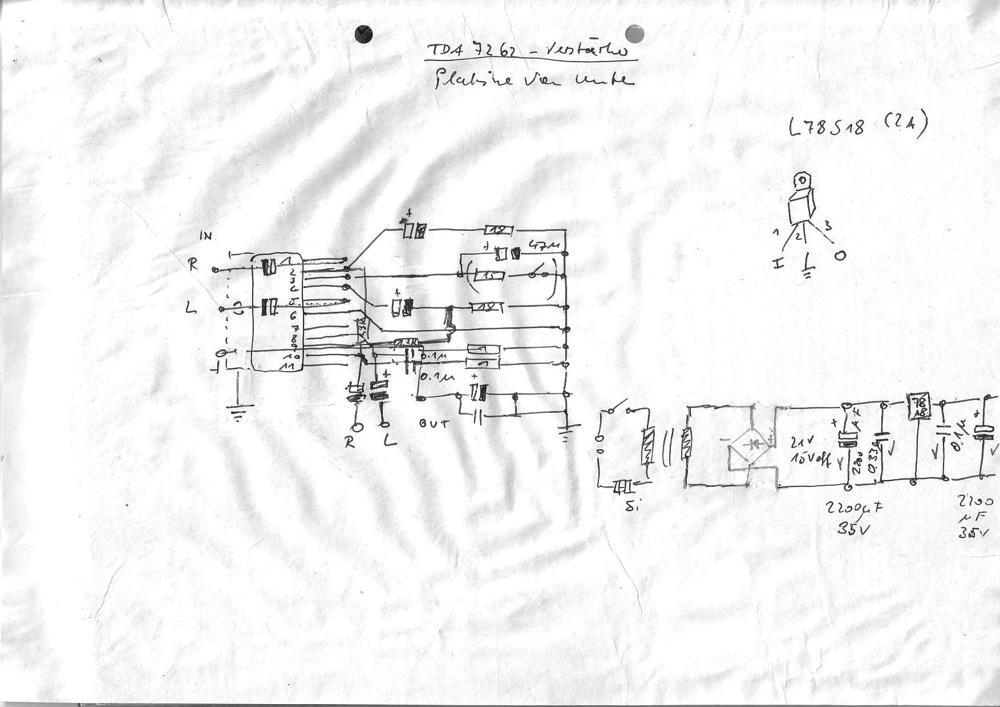 TDA 7262 - Verstärker
Platine von unten
L78S18 (2A)
1 2 3
I O
IN
R
L
+
18
+
47µ
1
2
3
4
5
6
7
8
9
10
11
+
18
1,3K
1,3K
0.1µ
0.1µ
1
1
+
+
R L
OUT
Si
- +
21V
15Veff
+
2200µ
0,33µ
78
18
0.1µ
+
2200µF
35V
2200
µF
35V